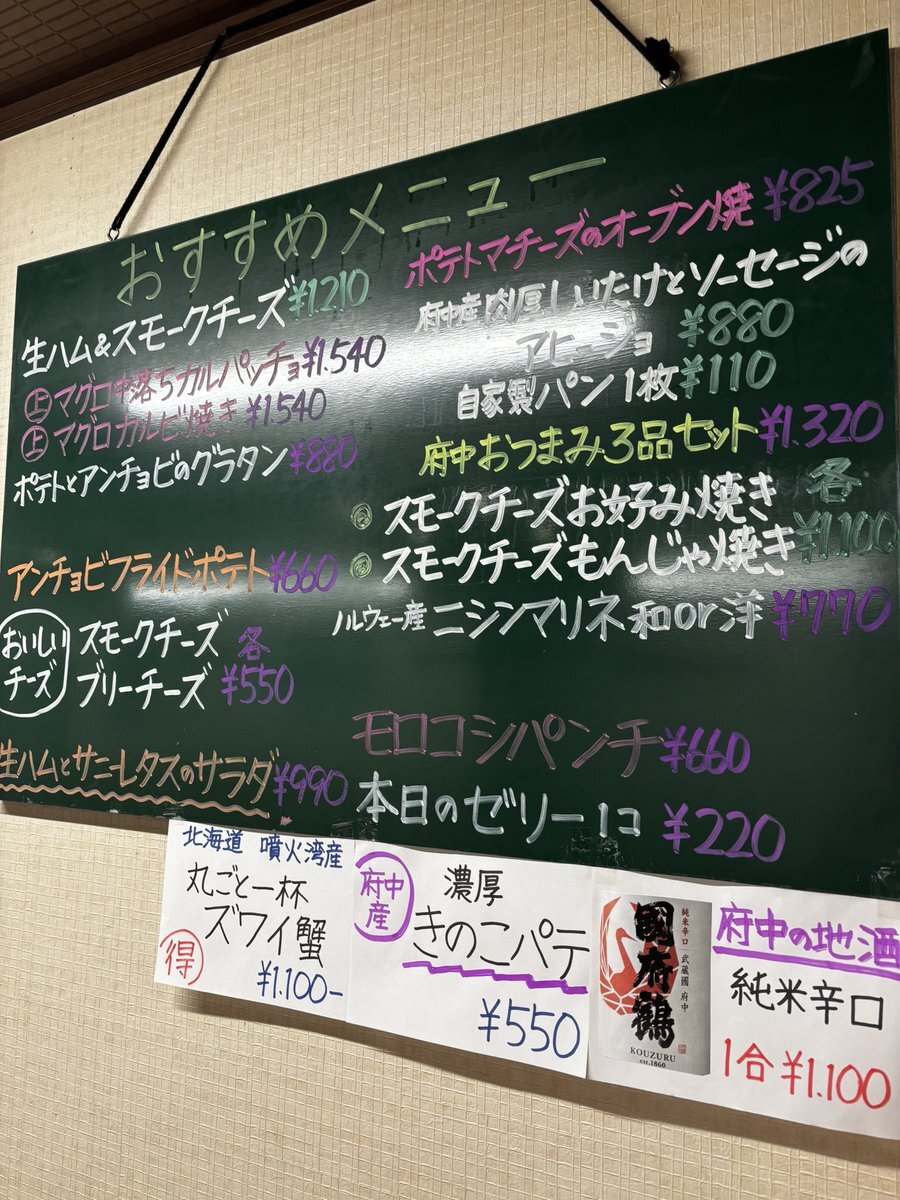 おすすめメニュー
生ハム&スモークチーズ ¥1,210
上 マグロ中落ちカルパッチョ ¥1,540
上 マグロカルビ焼き ¥1,540
ポテトとアンチョビのグラタン ¥880
アンチョビフライドポテト ¥660
おいしいチーズ
スモークチーズ 各
ブリーチーズ ¥550
生ハムとサニーレタスのサラダ ¥990
ポテトマチーズのオーブン焼 ¥825
府中産肉厚しいたけとソーセージの
アヒージョ ¥880
自家製パン1枚 ¥110
府中おつまみ3品セット ¥1,320
スモークチーズお好み焼き 各
スモークチーズもんじゃ焼き ¥1,100
ノルウェー産 ニシンマリネ 和or洋 ¥770
モロコシパンチ ¥660
本日のゼリー1コ ¥220
北海道 噴火湾産
丸ごと一杯
ズワイ蟹
得 ¥1.100-
府中産
濃厚
きのこパテ
¥550
純米辛口 武蔵國 府中
國府鶴
KOUZURU
est.1860
府中の地酒
純米辛口
1合 ¥1.100